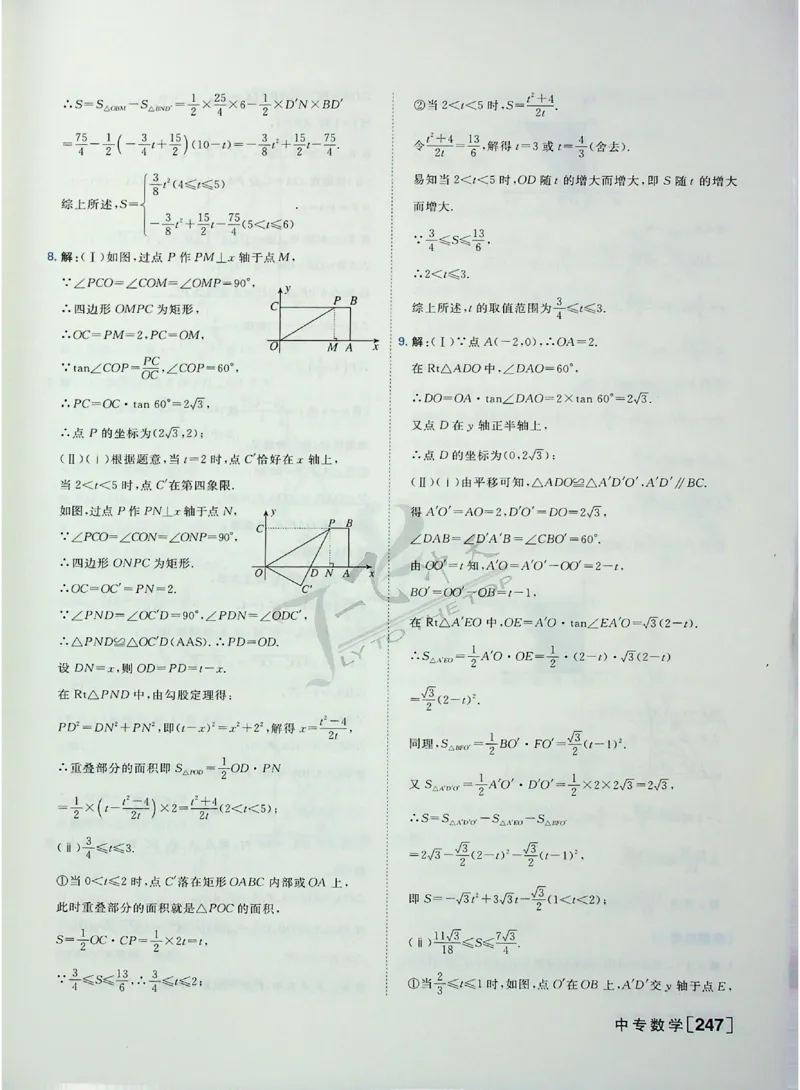 ∴S=S△OBM−S△BND′=1/2×25/4×6−1/2×D′N×BD′
=75/4−1/2(−3/4t+15/2)(10−t)=−3/8t²+15/2t−75/4.
综上所述,S={3/8t²(4≤t≤5)
−3/8t²+15/2t−75/4(5<t≤6).
8.解:(Ⅰ)如图,过点 P 作 PM⊥x 轴于点 M,
∵∠PCO=∠COM=∠OMP=90°,
∴四边形 OMPC 为矩形,
∴OC=PM=2,PC=OM,
∵tan∠COP=PC/OC,∠COP=60°,
∴PC=OC·tan 60°=2√3,
∴点 P 的坐标为(2√3,2);
y
C P B
O M A x
(Ⅱ)(ⅰ)根据题意,当 t=2 时,点 C′恰好在 x 轴上,
当 2<t<5 时,点 C′在第四象限.
如图,过点 P 作 PN⊥x 轴于点 N,
∵∠PCO=∠CON=∠ONP=90°,
∴四边形 ONPC 为矩形.
∴OC=OC′=PN=2.
y
C P B
O D N A x
C′
∵∠PND=∠OC′D=90°,∠PDN=∠ODC′,
∴△PND≌△OC′D(AAS).∴PD=OD.
设 DN=x,则 OD=PD=t−x.
在 Rt△PND 中,由勾股定理得:
PD²=DN²+PN²,即(t−x)²=x²+2²,解得 x=t²−4/2t,
∴重叠部分的面积即 S△POD=1/2OD·PN
=1/2×(t−t²−4/2t)×2=t²+4/2t(2<t<5);
(ⅱ)3/4≤t≤3.
①当 0<t≤2 时,点 C′落在矩形 OABC 内部或 OA 上,
此时重叠部分的面积就是△POC 的面积,
S=1/2OC·CP=1/2×2t=t,
∵3/4≤S≤13/6,∴3/4≤t≤2;
②当 2<t<5 时,S=t²+4/2t.
令t²+4/2t=13/6,解得 t=3 或 t=4/3(舍去).
易知当 2<t<5 时,OD 随 t 的增大而增大,即 S 随 t 的增大
而增大.
∵3/4≤S≤13/6,
∴2<t≤3.
综上所述,t 的取值范围为3/4≤t≤3.
9.解:(Ⅰ)∵点 A(−2,0),∴OA=2.
在 Rt△ADO 中,∠DAO=60°,
∴DO=OA·tan∠DAO=2×tan 60°=2√3.
又点 D 在 y 轴正半轴上,
∴点 D 的坐标为(0,2√3);
(Ⅱ)(ⅰ)由平移可知,△ADO≌△A′D′O′,A′D′∥BC.
得 A′O′=AO=2,D′O′=DO=2√3,
∠DAB=∠D′A′B=∠CBO′=60°.
由 OO′=t 知,A′O=A′O′−OO′=2−t,
BO′=OO′−OB=t−1,
在 Rt△A′EO 中,OE=A′O·tan∠EA′O=√3(2−t).
∴S△A′EO=1/2A′O·OE=1/2·(2−t)·√3(2−t)
=√3/2(2−t)².
同理,S△BFO′=1/2BO′·FO′=√3/2(t−1)².
又 S△A′D′O′=1/2A′O′·D′O′=1/2×2×2√3=2√3,
∴S=S△A′D′O′−S△A′EO−S△BFO′
=2√3−√3/2(2−t)²−√3/2(t−1)²,
即 S=−√3t²+3√3t−√3/2(1<t<2);
(ⅱ)11√3/18≤S≤7√3/4.
①当2/3≤t≤1 时,如图,点 O′在 OB 上,A′D′交 y 轴于点 E,
一飞冲天
FLY TO THE TOP
中专数学[247]